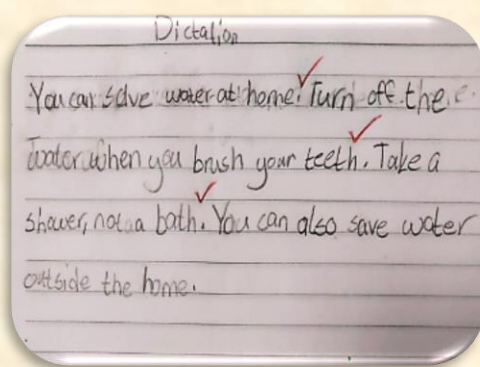 Dictation
You can save water at home. Turn off the
water when you brush your teeth. Take a
shower, not a bath. You can also save water
outside the home.